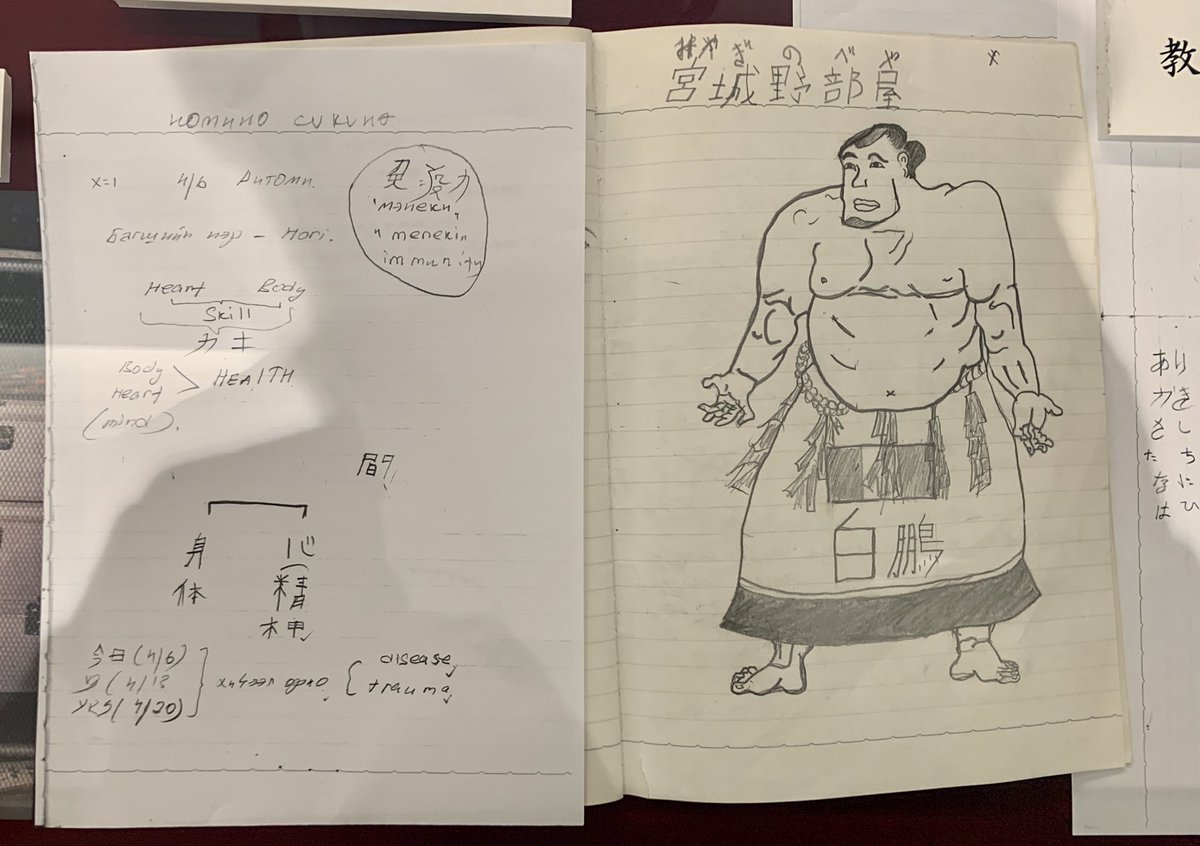 номино
x=1 4/6
免疫力
"мэнеки"
"meneki"
immunity
Багшийн нэр –
Heart Body
Skill
力士
Body
Heart
(mind).
HEALTH
身 心
体 精
神
今日(4/6)
(4/13)
(4/20)
хичээл орно
disease
trauma
みやぎのべや
宮城野部屋
白鵬
教
いきしちにひ
あかさたなは